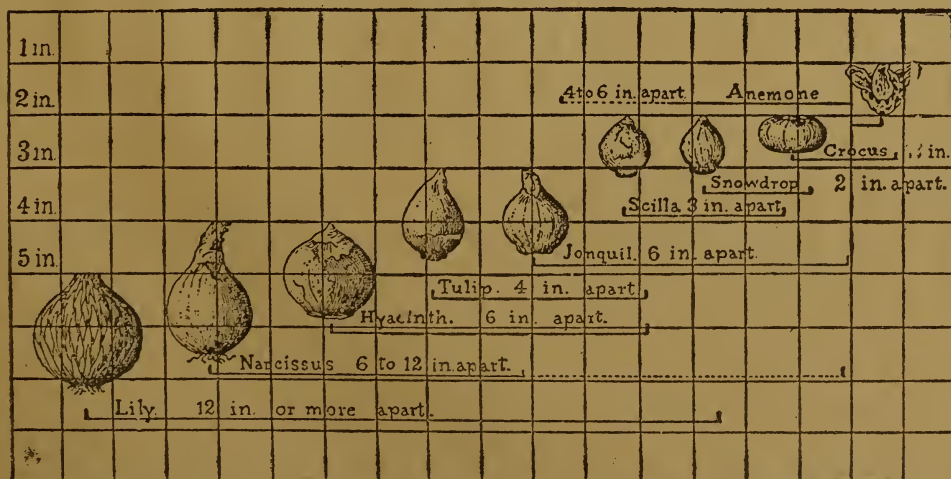 1 in.
2 in.
4 to 6 in. apart Anemone
3 in.
Crocus in.
Snowdrop 2 in. apart.
4 in.
Scilla 3 in. apart
5 in.
Jonquil. 6 in. apart.
Tulip. 4 in. apart
Hyacinth. 6 in. apart.
Narcissus 6 to 12 in. apart.
Lily. 12 in. or more apart.